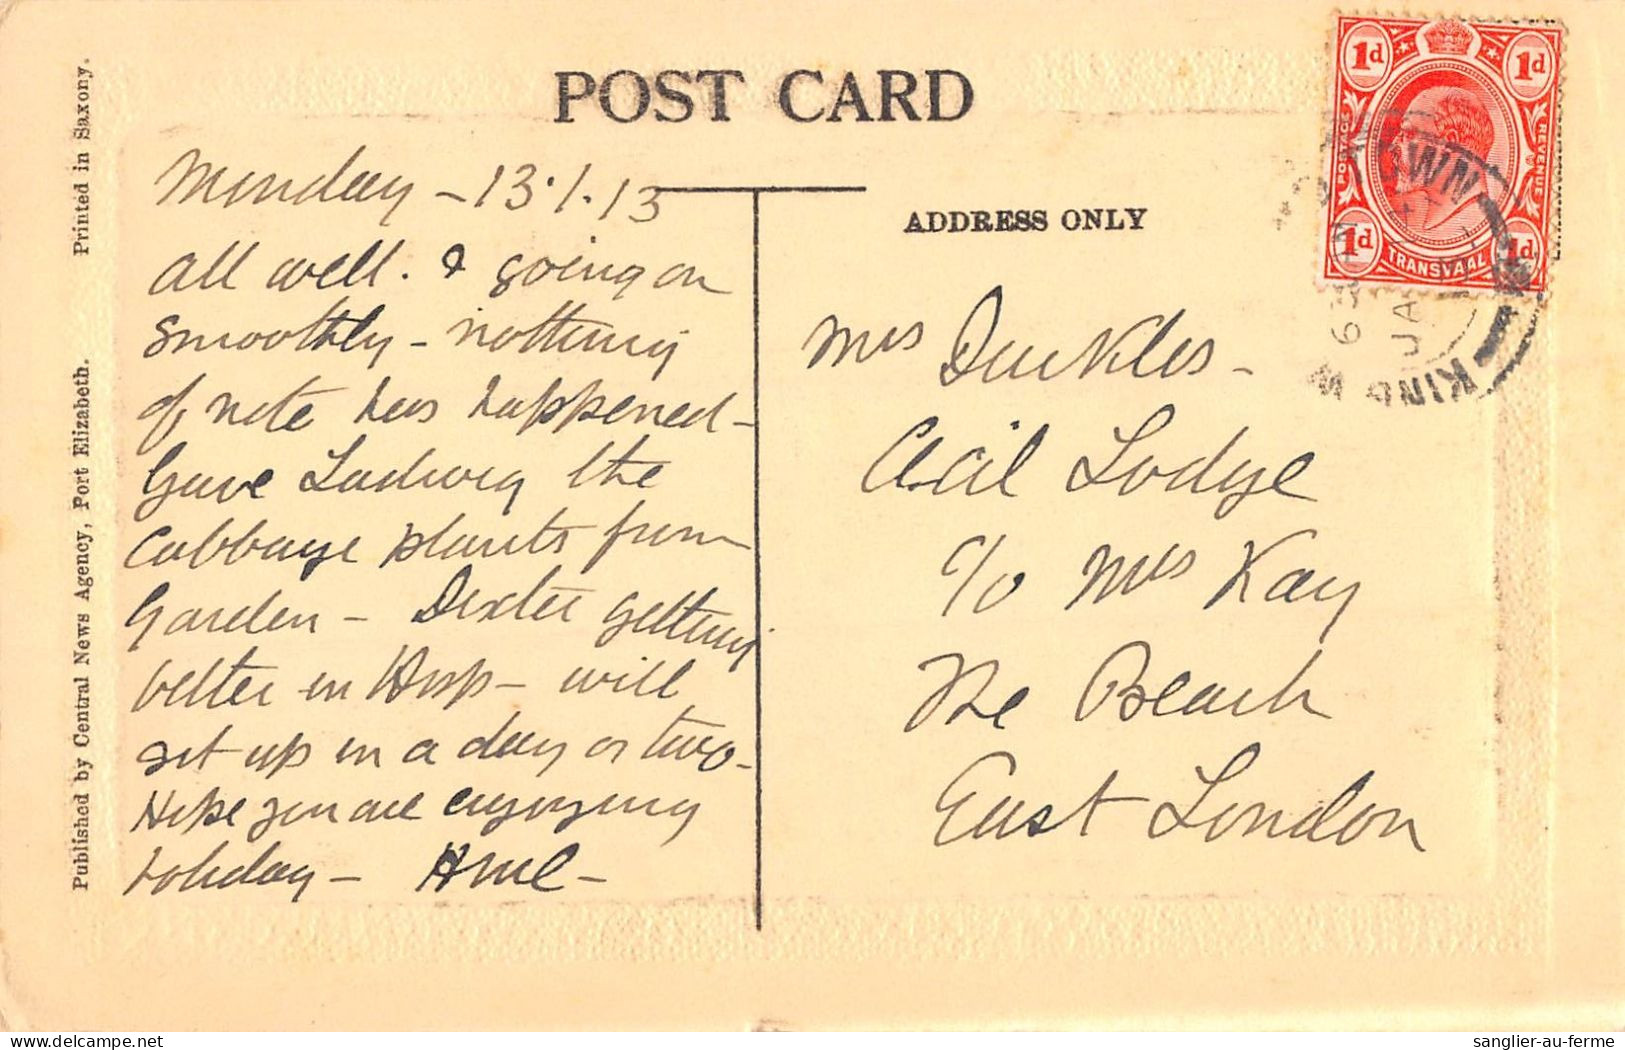 POST CARD
Monday - 13.1.13
All well. & going on
smoothly - nothing
of note has happened -
Gave Ludwig the
Cabbage plants from
Garden - Dexter getting
better in Hosp - will
set up in a day or two -
Hope you are enjoying
holiday -
ADDRESS ONLY
Mrs
Cecil Lodge
c/o Mrs Kay
The Beach
East London
1d 1d
POSTAGE REVENUE
1d 1d
TRANSVAAL
KING W
TOWN
JA
Published by Central News Agency, Port Elizabeth. Printed in Saxony.
sanglier-au-ferme